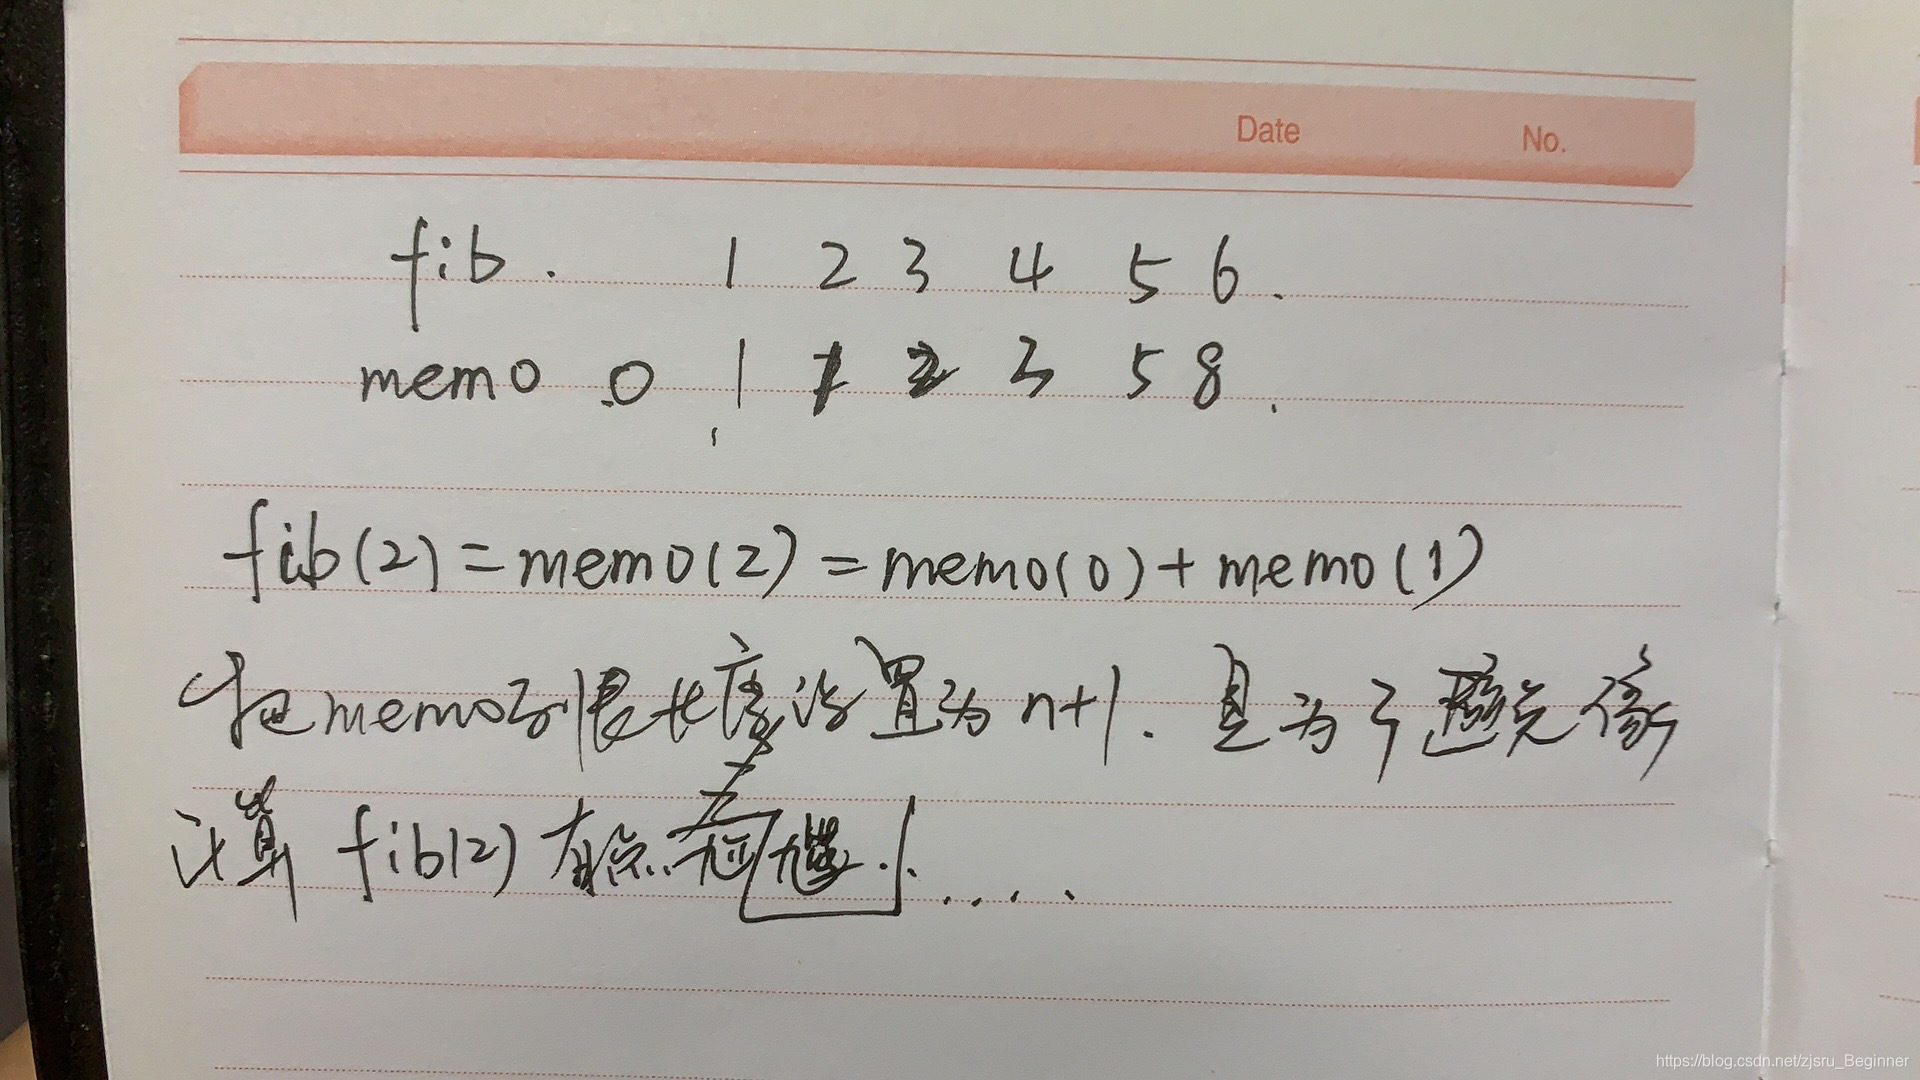 Date No.
fib. 1 2 3 4 5 6.
memo 0 1 1 2 3 5 8.
fib(2) = memo(2) = memo(0) + memo(1)
把memo的长度设置为n+1. 是为了避免像
计算 fib(2) 有点尴尬......
https://blog.csdn.net/zjsru_Beginner